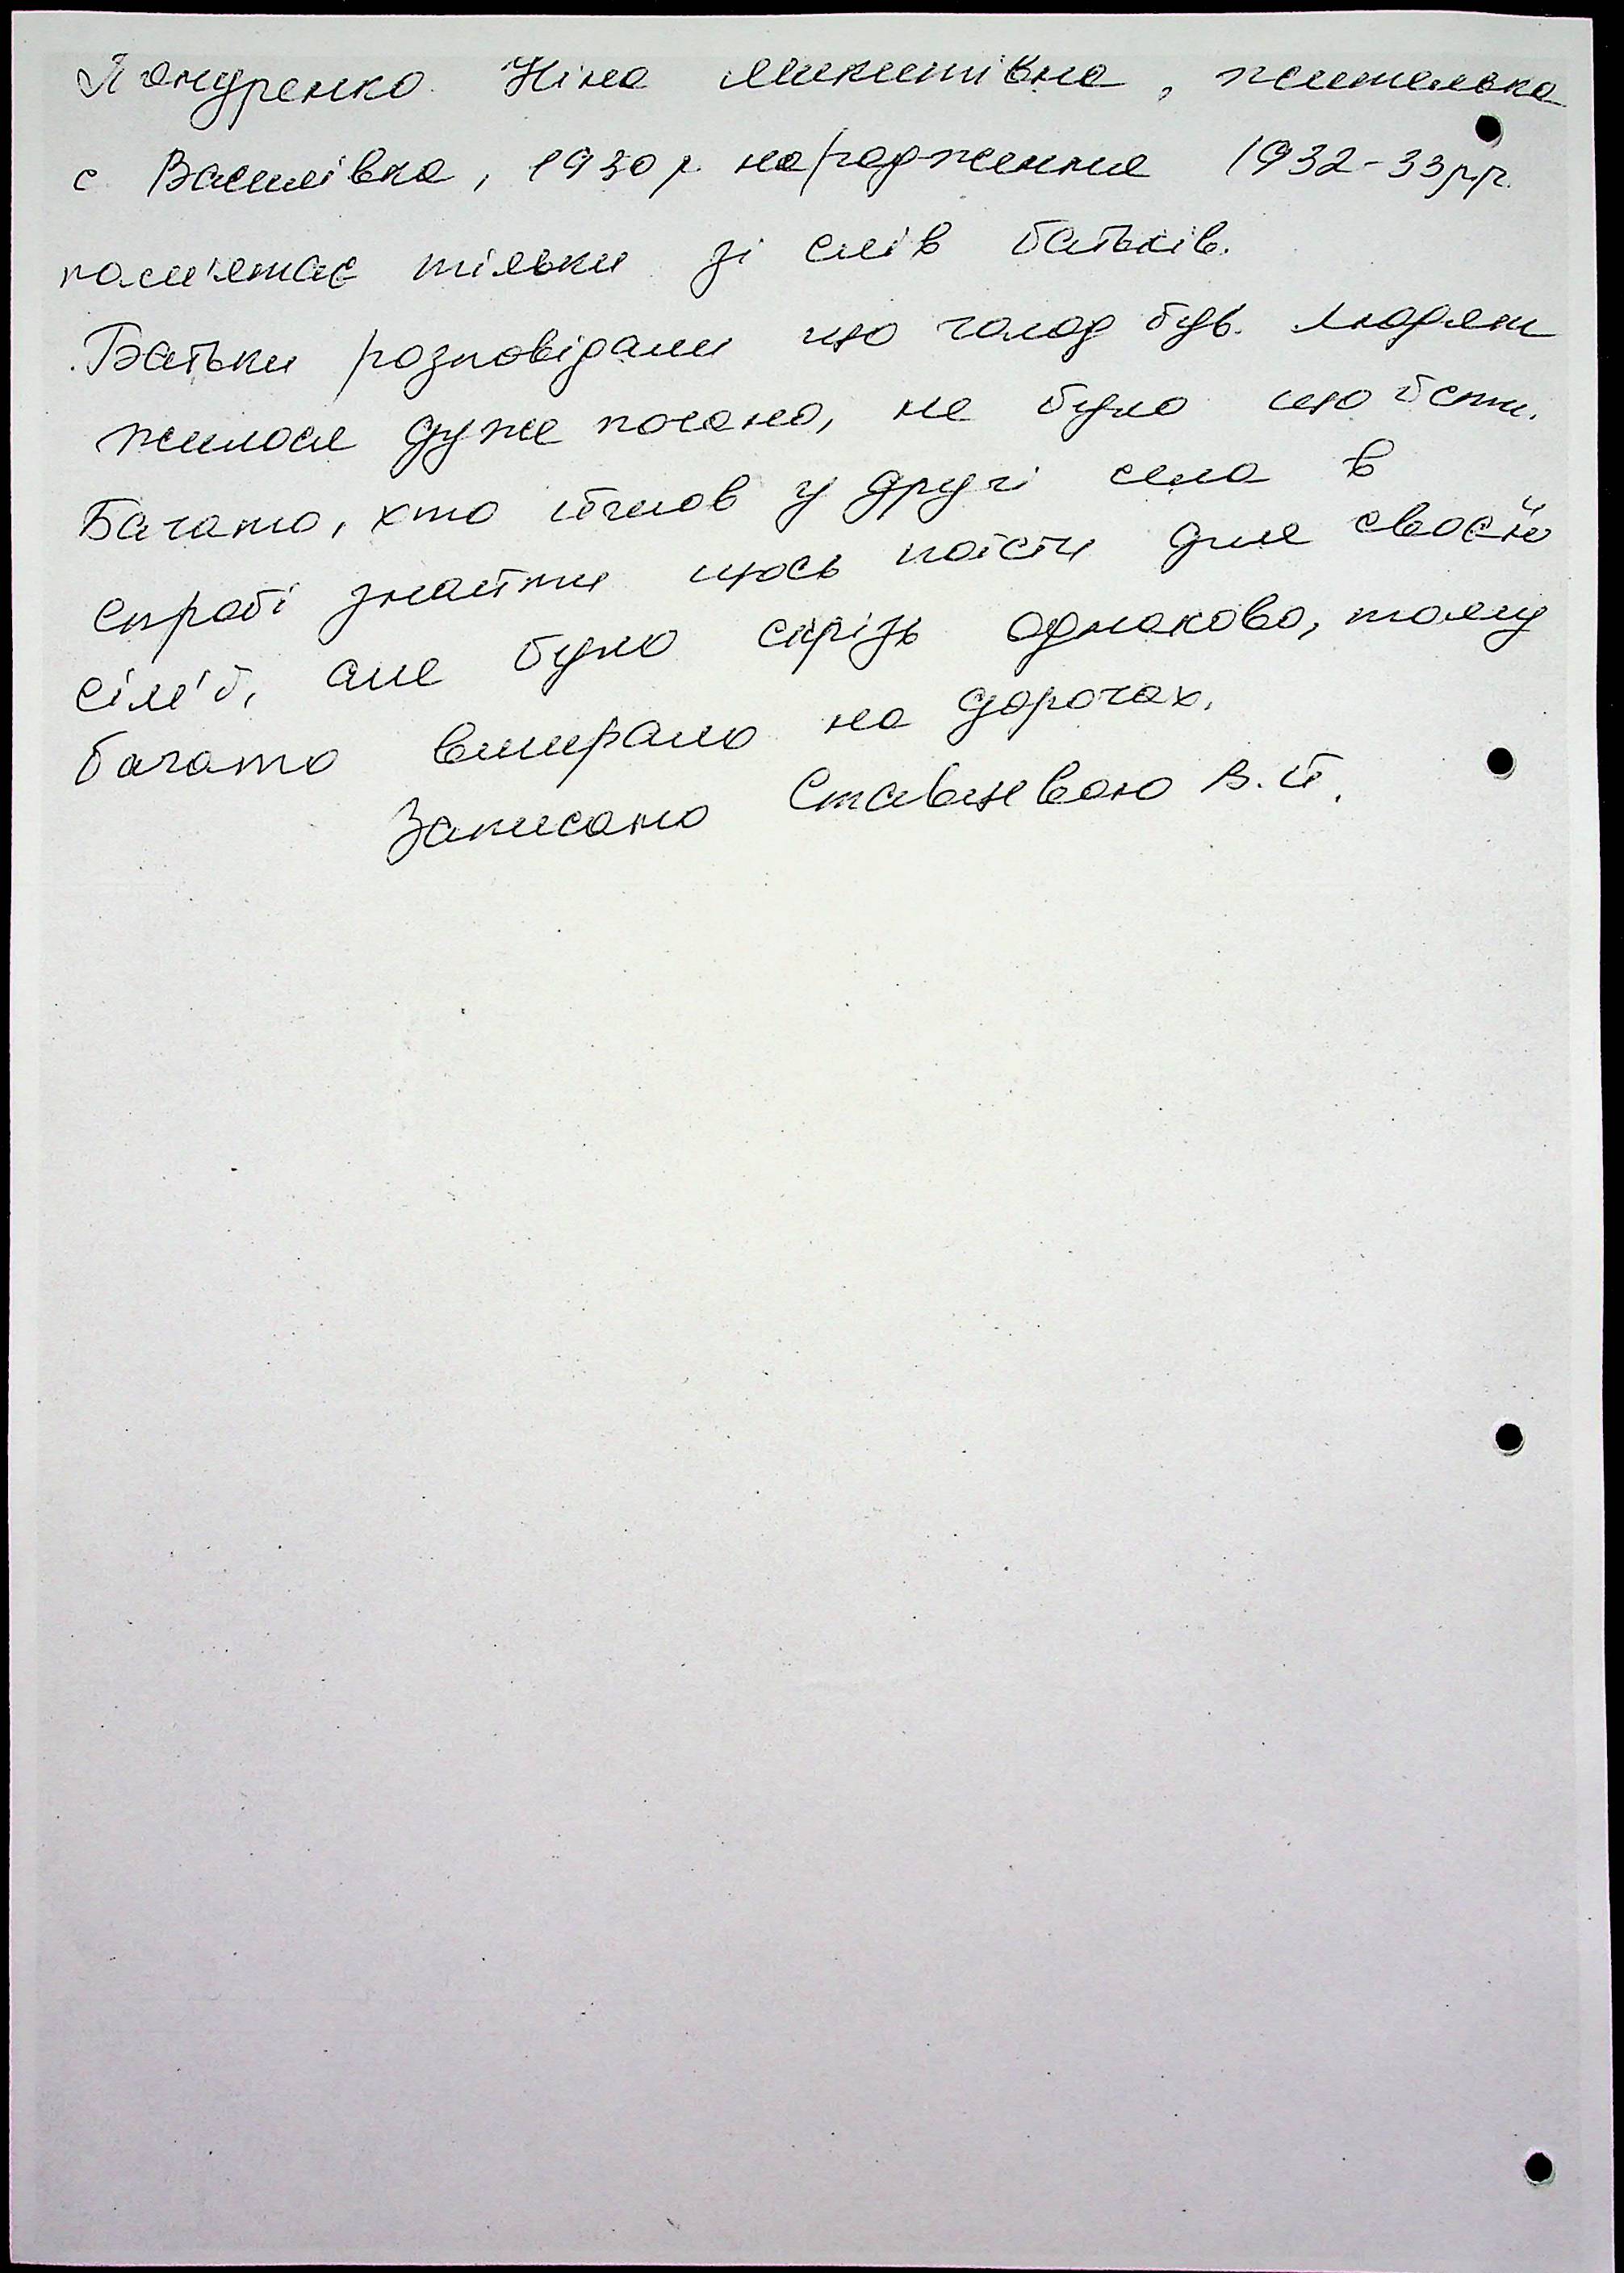 Пануренко Ніна Микитівна, жителька
с Василівка, 1930 р. народження 1932-33 р.р.
пам'ятає тільки зі слів батьків.
Батьки розповідали що голод був. Людям
жилося дуже погано, не було що їсти.
Багато, хто йшов у другі села в
спробі знайти щось поїсти для своєї
сім'ї, але було скрізь однаково, тому
багато вмирало на дорогах.
Записано В.Й.